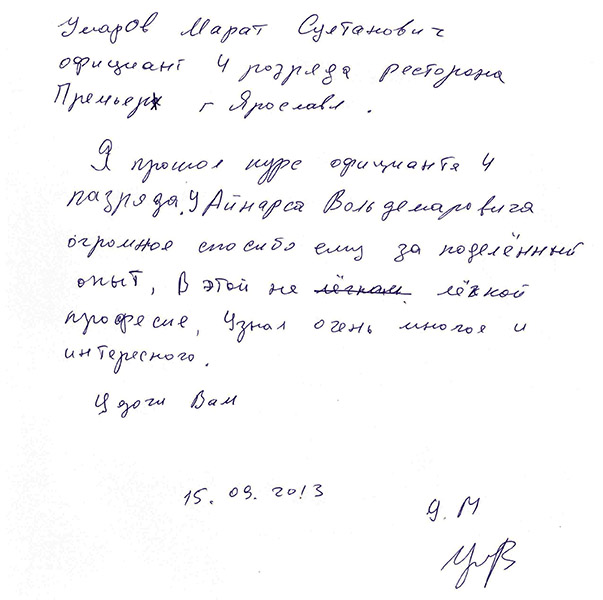 Умаров Марат Султанович
официант 4 розряда ресторона
Премьер г Ярославл.
Я прошол курс официанта 4
разряда, У Айнарса Вольдемаровича
огромное спосибо ему за поделённый
опыт, В этой не лёгкой
професие, Узнал очень многое и
интересного.
Удачи Вам
15.09.2013
У. М